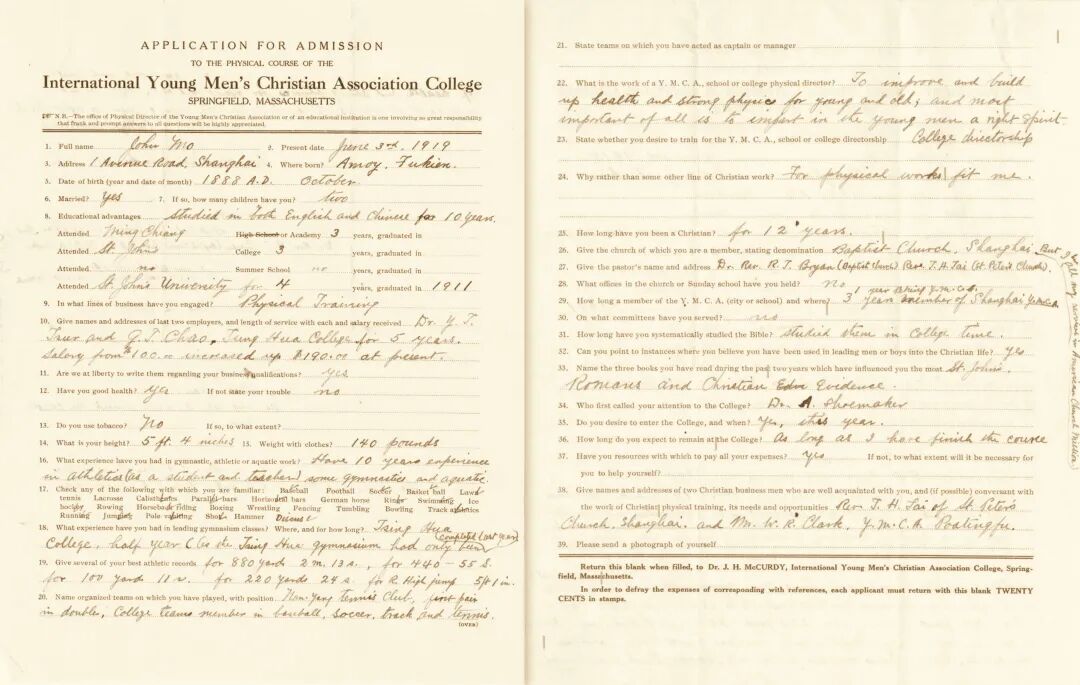 APPLICATION FOR ADMISSION
TO THE PHYSICAL COURSE OF THE
International Young Men's Christian Association College
SPRINGFIELD, MASSACHUSETTS
N. B.—The office of Physical Director of the Young Men's Christian Association or of an educational institution is one involving so great responsibility
that frank and prompt answers to all questions will be highly appreciated.
1. Full name John Mo 2. Present date June 3rd, 1919
3. Address 1 Avenue Road, Shanghai 4. Where born? Amoy, Fukien.
5. Date of birth (year and date of month) 1888 A.D. October.
6. Married? Yes 7. If so, how many children have you? two
8. Educational advantages studied in both English and Chinese for 10 years.
Attended Ming Chiang High School or Academy 3 years, graduated in
Attended St. John's College 3 years, graduated in
Attended no Summer School no years, graduated in
St. John's University for 4 years, graduated in 1911
9. In what lines of business have you engaged? Physical Training
10. Give names and addresses of last two employers, and length of service with each and salary received Dr. Y. T.
Tsur and Y. T. Chao, Tsing Hua College for 5 years.
Salary from $100.00 increased up $190.00 at present.
11. Are we at liberty to write them regarding your business qualifications? Yes
12. Have you good health? Yes If not state your trouble no
13. Do you use tobacco? No If so, to what extent?
14. What is your height? 5 ft. 4 inches 15. Weight with clothes? 140 pounds
16. What experience have you had in gymnastic, athletic or aquatic work? Have 10 years experience
in athletics (as a student and teacher) some gymnastics and aquatic.
17. Check any of the following with which you are familiar: Baseball Football Soccer Basket ball Lawn
tennis Lacrosse Calisthenics Parallel bars Horizontal bars German horse Rings Swimming Ice
hockey Rowing Horseback riding Boxing Wrestling Fencing Tumbling Bowling Track athletics
Running Jumping Pole vaulting Shot Hammer Discus
18. What experience have you had in leading gymnasium classes? Where, and for how long? Tsing Hua
College, half year (as the Tsing Hua gymnasium had only been
completed last year)
19. Give several of your best athletic records for 880 yards 2 m. 13 s., for 440 – 55 s.
for 100 yards 11 s. for 220 yards 24 s. for R. High jump 5 ft 1 in.
20. Name organized teams on which you have played, with position tennis Club, first pair
in doubles, College teams member in baseball, soccer, track and tennis.
(OVER)
21. State teams on which you have acted as captain or manager
22. What is the work of a Y. M. C. A., school or college physical director? To improve and build
up health and strong physic for young and old; and most
important of all is to impart in the young men a right spirit.
23. State whether you desire to train for the Y. M. C. A., school or college directorship College directorship
24. Why rather than some other line of Christian work? For physical works fit me.
25. How long have you been a Christian? for 12 years.
26. Give the church of which you are a member, stating denomination Baptist Church, Shanghai. But
27. Give the pastor's name and address Dr. Rev. R. T. Bryan (Baptist Church) Rev. T. H. Tai (St. Peter's Church).
28. What offices in the church or Sunday school have you held? no
29. How long a member of the Y. M. C. A. (city or school) and where? 1 year Peking Y.M.C.A. 3 years member of Shanghai Y.M.C.A.
30. On what committees have you served? no
31. How long have you systematically studied the Bible? studied them in College time.
32. Can you point to instances where you believe you have been used in leading men or boys into the Christian life? Yes
33. Name the three books you have read during the past two years which have influenced you the most St. Johns.
Romans and Christian Evidence.
34. Who first called your attention to the College? Dr. A. Shoemaker
35. Do you desire to enter the College, and when? Yes, this year.
36. How long do you expect to remain at the College? As long as I have finish the course
37. Have you resources with which to pay all your expenses? yes If not, to what extent will it be necessary for
you to help yourself?
38. Give names and addresses of two Christian business men who are well acquainted with you, and (if possible) conversant with
the work of Christian physical training, its needs and opportunities Rev. T. H. Tai of St. Peter's
Church, Shanghai. and Mr. W. R. Clark, Y.M.C.A. Paotingfu.
39. Please send a photograph of yourself
Return this blank when filled, to Dr. J. H. McCURDY, International Young Men's Christian Association College, Spring-
field, Massachusetts.
In order to defray the expenses of corresponding with references, each applicant must return with this blank TWENTY
CENTS in stamps.
in American Church Mission